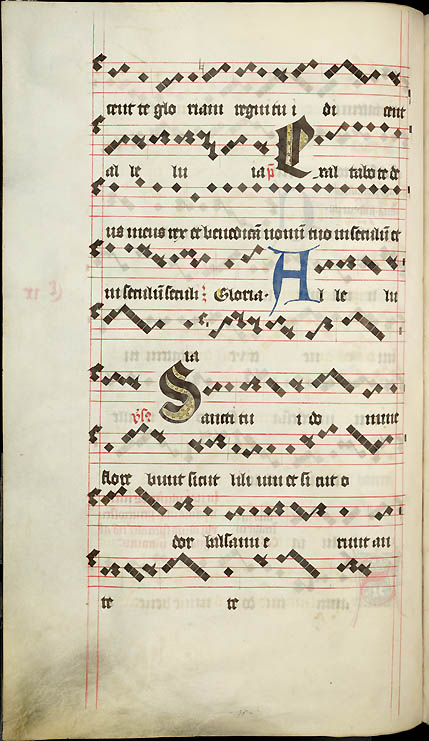 cent te glo riam regni tu i di cent
al le lu ia p̄s Exal tabo te de
us meus rex et benedicā nomi͞ tuo in seculū et
in seculū seculi : Gloria. Al le lu
ia
v̄s Sancti tu i do mine
flore bunt sicut lili um et si cut o
dor balsami e runt an
te te